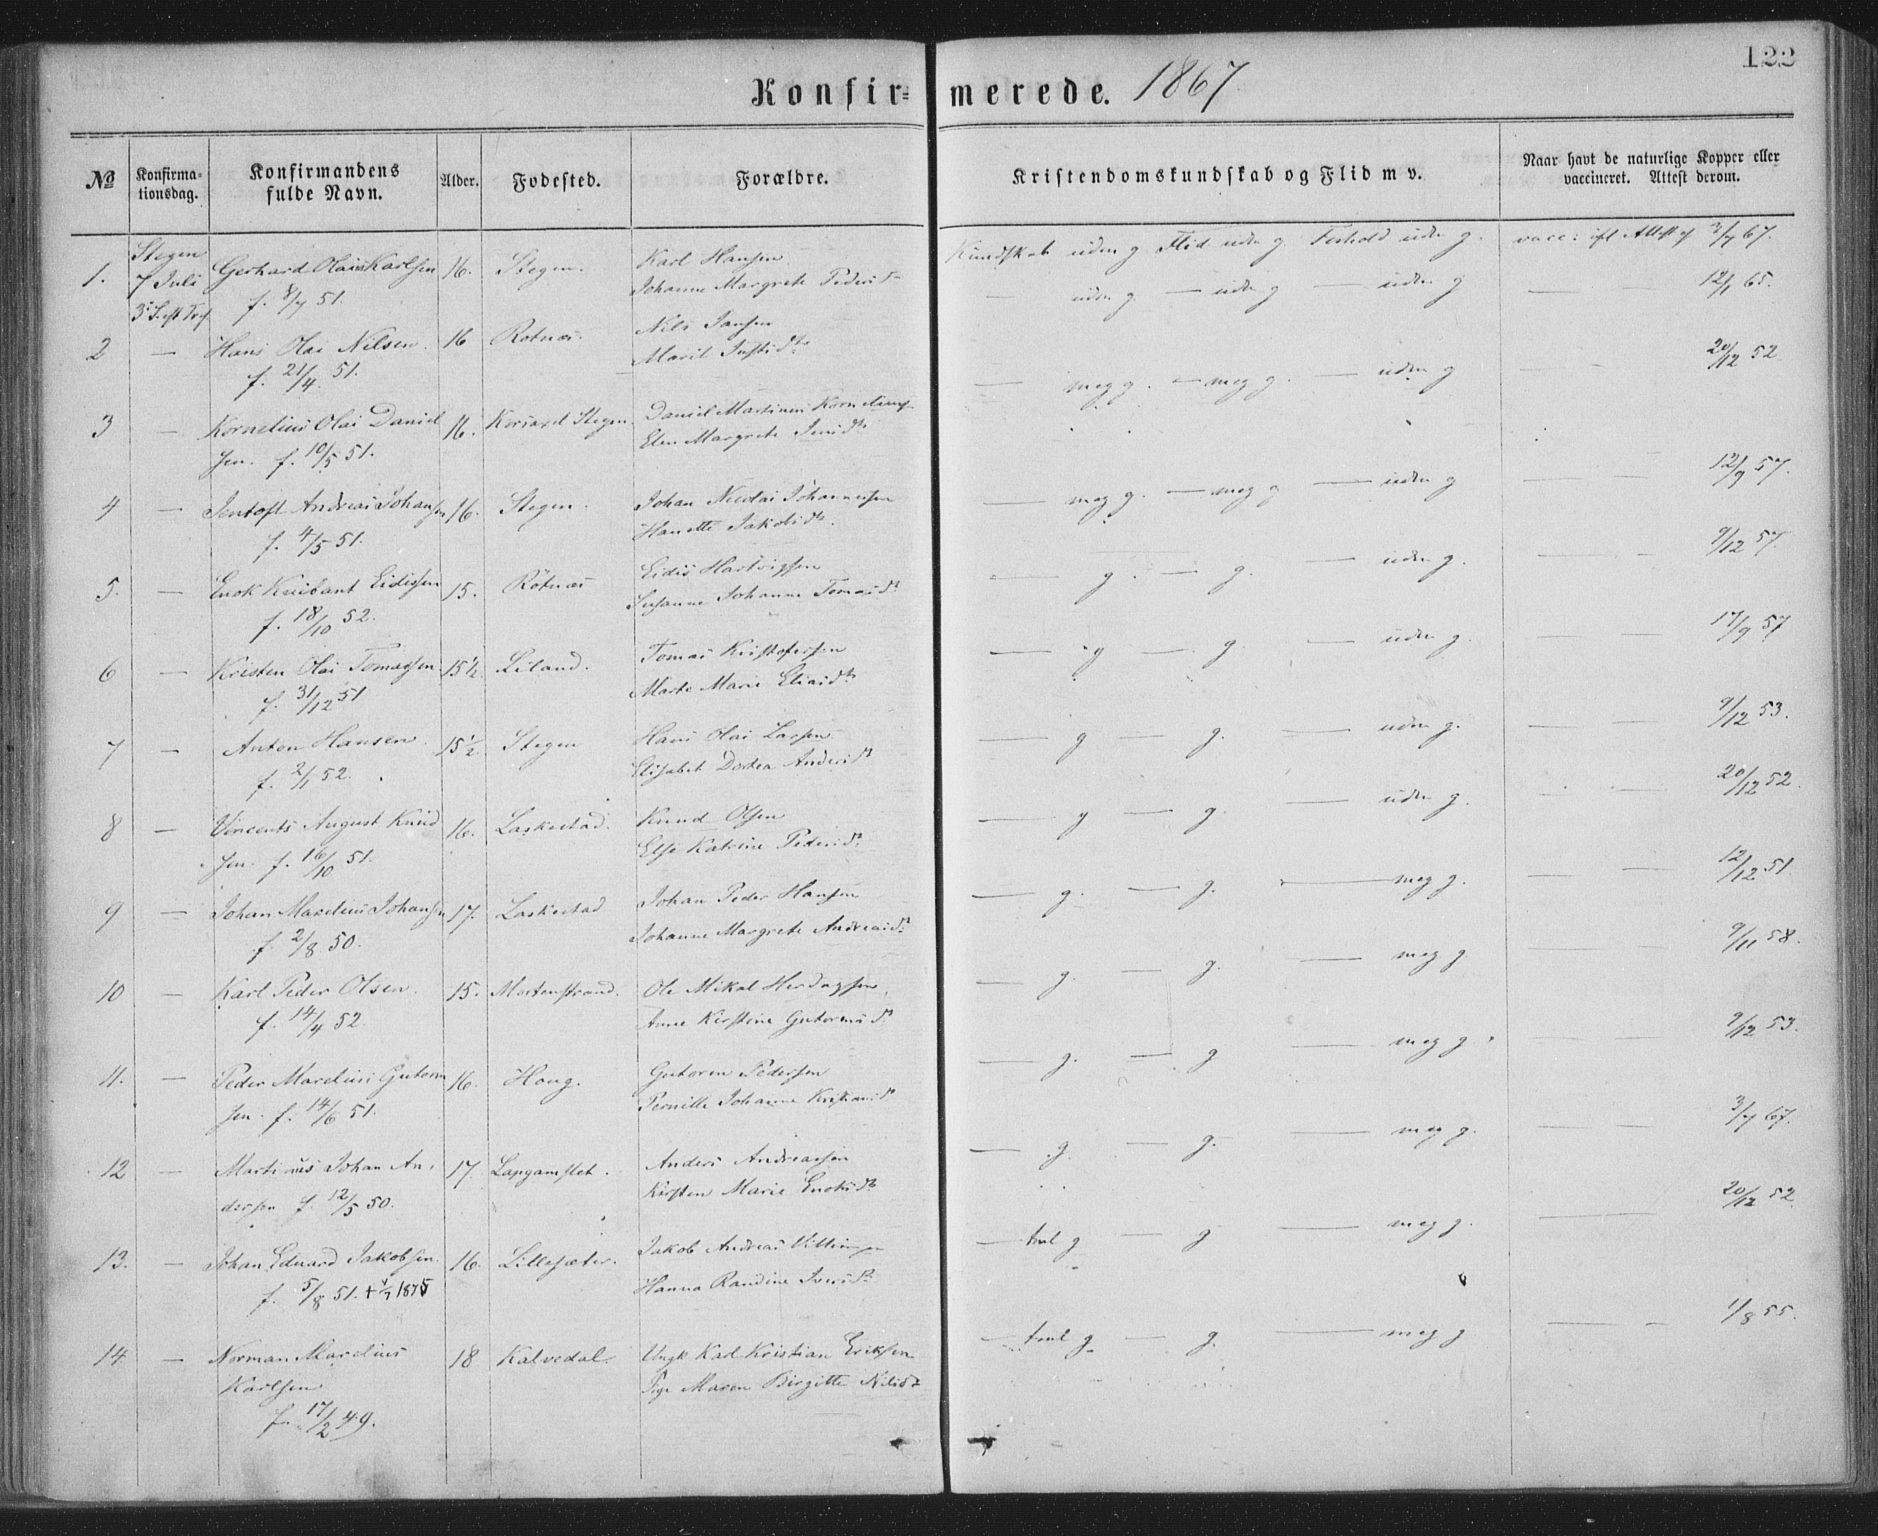 122
Konfirmerede. 1867
No
Konfirmationsdag.
Konfirmandens fulde Navn.
Alder.
Fødested.
Forældre.
Kristendomskundskab og Flid m v.
Naar havt de naturlige Kopper eller vaccineret. Attest derom.
1. Stegen 7 Juli Gerhard Olai Karlsen 16. Stegen. Karl Hansen Kundskab uden g. Flid uden g. Forhold uden g. vacc: Attest 3/7 67.
f. 8/7 51. Johanne Margrete Pedersd
2 — Hans Olai Nilsen. 16 Rotnæs. Nils Jansen — uden g — uden g — uden g — 12/1 65.
f. 21/4 51. Marit
3 — Kornelius Olai Daniel 16. Stegen Daniel Martinus — meg g. — meg g. — uden g — 20/12 52
sen. f. 10/5 51. Elen Margrete
4 — Jentoft Andreas Johansen 16. Stegen. Johan Nicolai Johannessen — meg g. — meg g — uden g — 12/9 57.
f. 4/5 51. Hanette Jakobsdtr.
5. — Enok Eidissen 15. Rotnæs Eidis Hartvigsen — g. — g. — uden g. — 9/12 57.
f. 18/10 52. Susanne Johanna Tomasdtr
6 — Kristen Olai Tomassen. 15½. Leiland. Tomas Kristofersen — g — g. — uden g. — 17/9 57
f. 31/12 51 Marte Marie Eliasdtr
7 — Anton Hansen. 15½. Stegen Hans Olai Larsen — g — g. — uden g. — 9/12 53.
f. 2/1 52. Elisabet Dortea Andersdtr
8 — Vincents August Knud 16. Laskestad. Knud Olsen — g — g. — uden g. — 20/12 52.
sen. f. 16/10 51. Else Katrine Pedersdtr
9 — Johan Marelius Johansen 17. Laskestad Johan Peder Hansen — g. — g. — meg g. — 12/12 51.
f. 2/8 50. Johanne Margrete Andreasdtr
10 — Karl Peder Olsen. 15. Mortenstrand. Ole Mikal Herdagsen. — g. — g. — meg g — 9/11 58.
f. 14/4 52. Anne Kirstine Gutormsdtr
11. — Peder Marelius Gutorm 16. Houg. Gutorm Pedersen — g. — g — meg g. — 9/12 53.
sen. f. 14/6 51. Pernille Johanna Kristiansdtr
12 — Martinus Johan An- 17. Anders Andreassen — g. — g. — meg g. — 3/7 67.
dersen f. 12/5 50. Kirsten Marie Enoksdtr
13. — Johan Eduard Jakobsen. 16. Lillesæter. Jakob Andreas — tvl g — g — meg g. — 20/12 52
f. 5/8 51. + 1/7 1875 Hanna Randine Iversdtr
14 — Norman Marelius 18 Kalvedal. Ungk Karl Kristian Eriksen — tvl g — g. — meg g — 1/8 55.
Karlsen Pige Maren Birgitte Nilsdtr
f. 17/2 49.